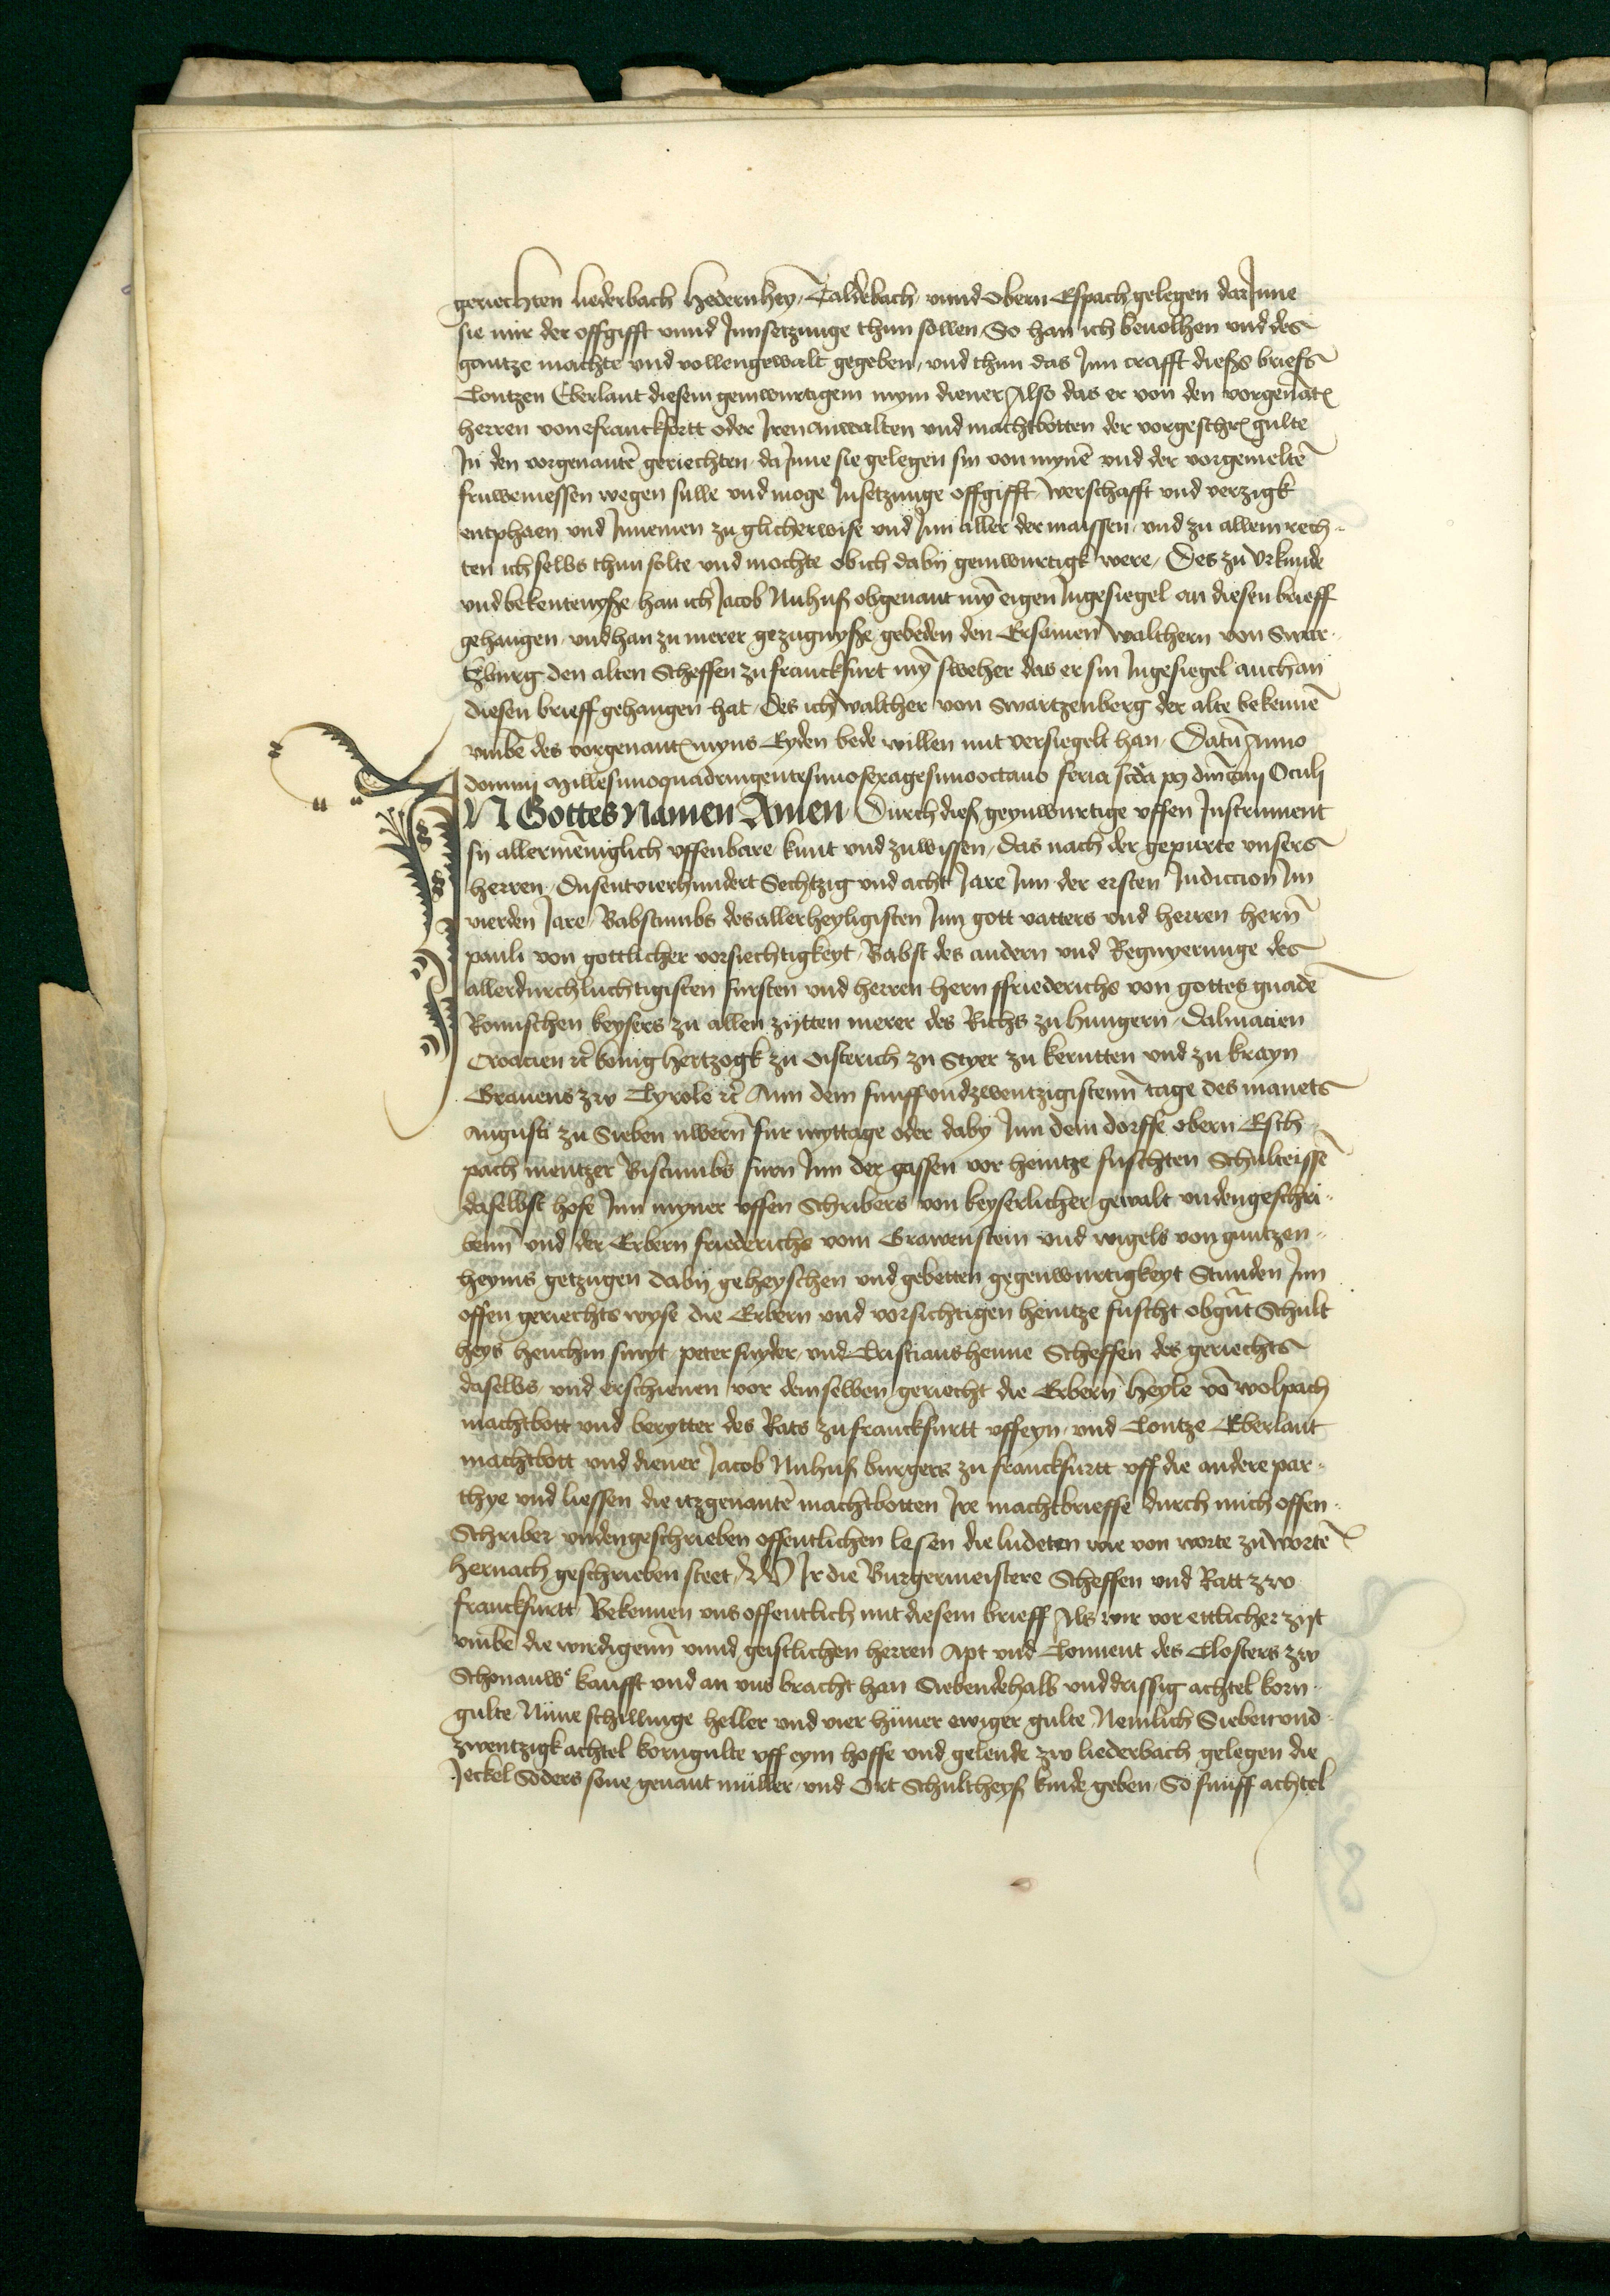 geriechten liederbach Hedernhey, Caldebach, vnnd Obern Espach gelegen dar Jnne
sie mir der offgifft vnnd Jnnsetzunge thun sollen So han ich beuolhen vnd des
gantze machte vnd vollengewalt gegeben, vnd thun das Jnn crafft diesßs briefs
Contzen Eberlant diesem geinwurtigem mym diener Also das er von den vorgenāt
herren von ffranckfortt oder Jren anwalten vnd machtbotten der vorgeschr gulte
Jn den vorgenantē geriechten da Jnne sie gelegen sin von mynē vnd der vorgemeltē
fruwemessen wegen sulle vnd moge Jnsetzunge offgifft, werschafft vnd verzigk
entphaen vnd Jnnemen zu glicherwise vnd Jnn aller der maissen vnd zu allem rech-
ten ich selbs thun solte vnd mochte ob ich daby geinwurtigk were, Des zu Vrkunde
vnd bekentenyße han ich Jacob Nuhuß obgenant mȳ eigen Jngesiegel an diesen brieff
gehangen, vnd han zu merer gezugnyße gebeden den Ersamen Walthern von Swar-
tzburg den alten Scheffen zu franckfurt mȳ sweher das er sin Jngesiegel auch an
diesen brieff gehangen hat, Des ich Walther von Swartzenberg der alte bekennē
vmbe des vorgenant myns Eyden bede willen mit versiegelt han, Datū Anno
domini Millesimoquadringentesimosexagesimooctauo feria scda p9 dnicam Oculi
JN Gottes Namen Amen Durch dieß geynwurtige vffen Jnstrument
sy allermēniglich vffenbare kunt vnd zuwissen, das nach der gepurte vnsers
herren, Dusentvierhundert Sechtzig vnd acht Jare Jnn der ersten Jndiccion Jm
vierden Jare, Babstumbs des allerheyligisten Jnn gott vatters vnd herren hern̄
pauli von gottlicher vorsiechtigkeyt, Babst des andern vnd Regnyerunge des
allerdurchluchtigisten fursten vnd herren hern ffriederichs von gottes gnadē
Romischen keysers zu allen zytten merer des Richs zu hungern, Dalmacien
Croacien rc konig hertzogk zu Osterich zu Styer zu kerntten vnd zu krayn
Grauens zw Tyrole rc Ann dem funffvndzwentzigistenn tage des manets
Augusti zu Sieben vwern̄ fur myttage oder daby Jnn dem dorffe obern Esch-
pach mentzer Bistumbs furn Jnn der gassen vor heintze fuschten Schulteissē
daselbst hofe Jnn myner vffen Schribers von keyserlicher gewalt vndengeschri-
benn̄ vnd der Erbern friederichs vom Grawenstein vnd wigels von guntzen-
heyms getzugen daby geheyschen vnd gebetten gegenwurtigkeyt Stunden Jnn
offen geriechts wyse die Erbern vnd vorsichtigen heintze fuscht obgn̄t Schult
heys henchin smyt, peter snyder, vnd Cristians henne Scheffen des geriechts
daselbs, vnd erschienen vor demselben geriecht die Erbern̄ heyle vō wolpach
machtbott vnd berytter des Rats zu franckfurtt vff eyn, vnd Contze Eberlant
machtbott vnd diener Jacob Nuhuß burgers zu franckfurtt vff die andere par-
thye vnd liessen die itzgenantē machtbotten Jre machtbrieffe durch mich offen-
Schriber vndengeschrieben offentlichen lesen die ludeten wie von worte zu wortē
hernach geschrieben steet, WJr die Burgermeistere Scheffen vnd Ratt zw
franckfurtt, Bekennen vns offentlich mit diesem brieff Als wir vor ettlicher zijt
vmbe die wirdigenn̄ vnnd geistlichen herren Apt vnd Conuent des Closters zw
Schonauwe kaufft vnd an vns bracht han Siebendehalb vnddrissig achtel korn-
gulte, Nüne schillinge heller vnd vier hüner ewiger gulte, Nemlich Siebenvnd-
zwentzigk achtel korngulte vff eym hoffe vnd gelende zw liederbach gelegen die
Jeckel Soders sone genant müller, vnd Ort Schultheyß kinde geben, So funff achtel